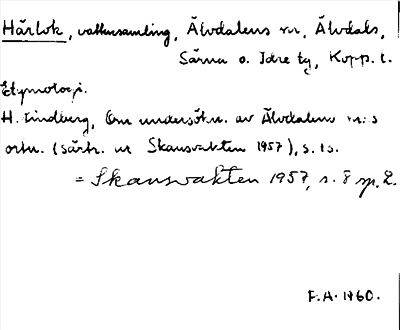 Härlok, vattensamling, Älvdalens sn, Älvdals,
Särna o. Idre tg, Kopp. l.
Etymologi.
H. Lindberg, Om undersökn. av Älvdalens sn:s
ortn. (särtr. ur Skansvakten 1957), s. 15.
= Skansvakten 1957, s. 8 sp. 2.
F.A. 1960.